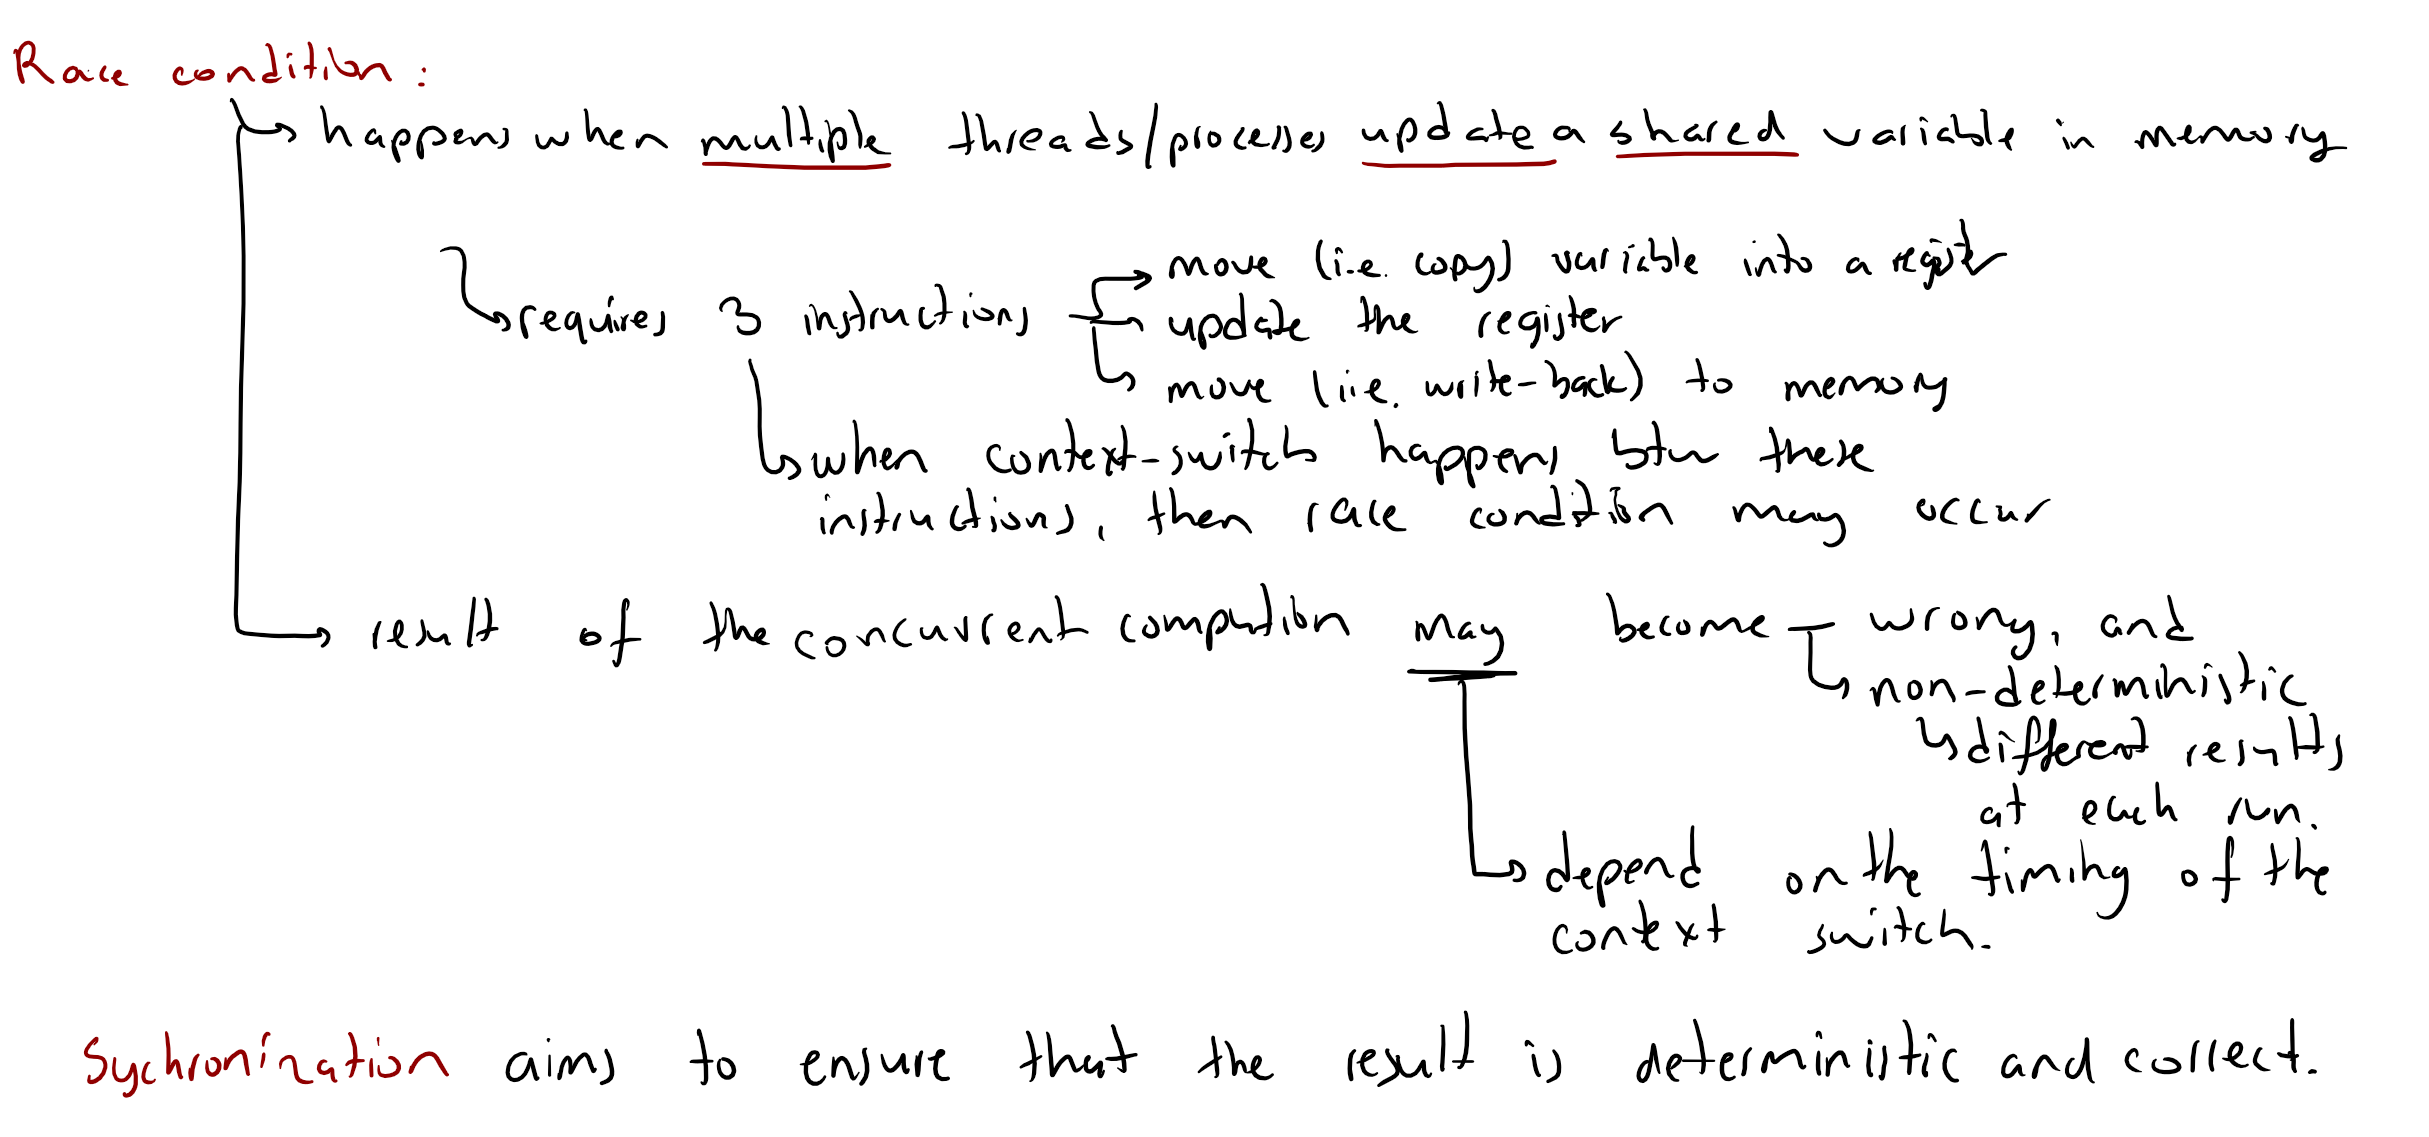 Race condition:
happens when multiple threads/processes update a shared variable in memory
move (i.e. copy) variable into a register
requires 3 instructions
update the register
move (i.e. write-back) to memory
when context-switch happens btw these
instructions, then race condition may occur
result of the concurrent compution may become wrong, and
non-deterministic
different results
at each run.
depend on the timing of the
context switch.
Sychronization aims to ensure that the result is deterministic and correct.